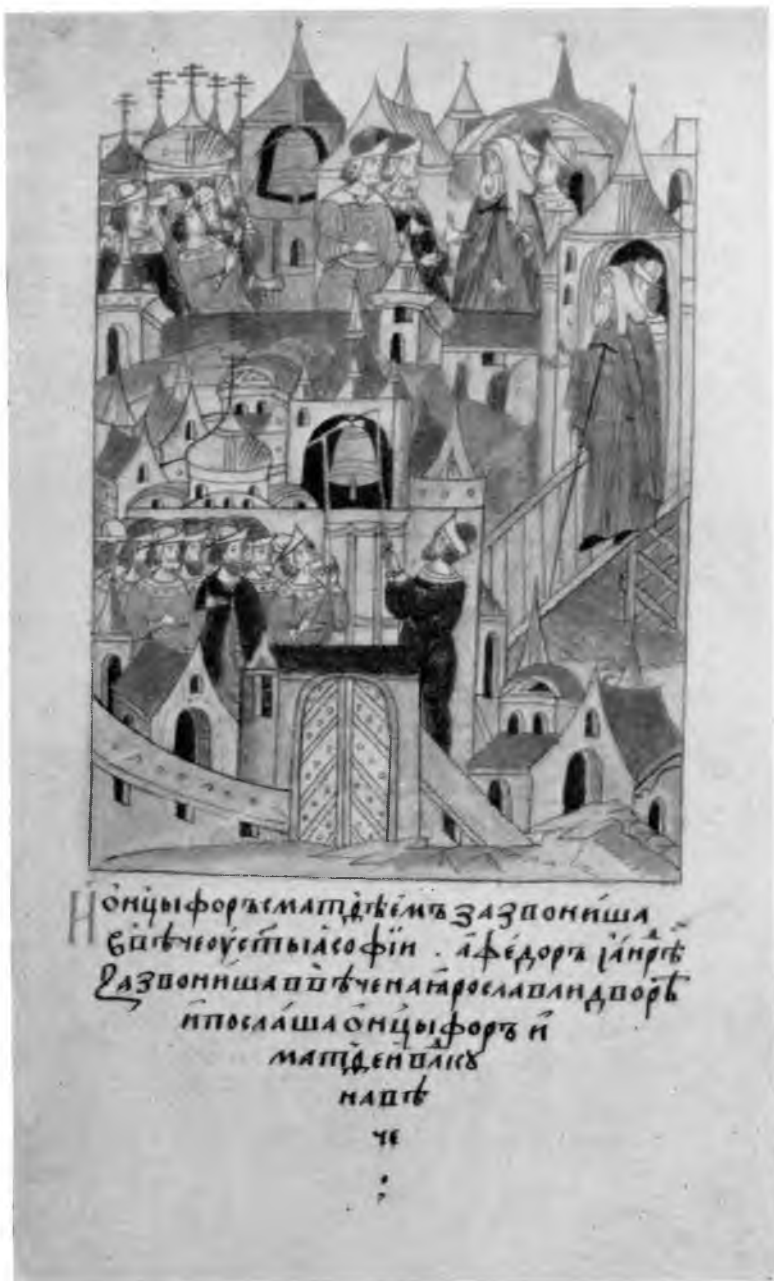 И҆ о҆нцыфоръ с матѳѣемъ зазвониша
в вѣче оу ст҃ыꙗ софїи . а҆ ѳедоръ и҆ а҆ндрѣи
зазвониша в вѣче на ꙗрославли дворѣ
и҆ послаша о҆нцыфоръ и҆
матѳеи влⷣкꙋ
на вѣ
че